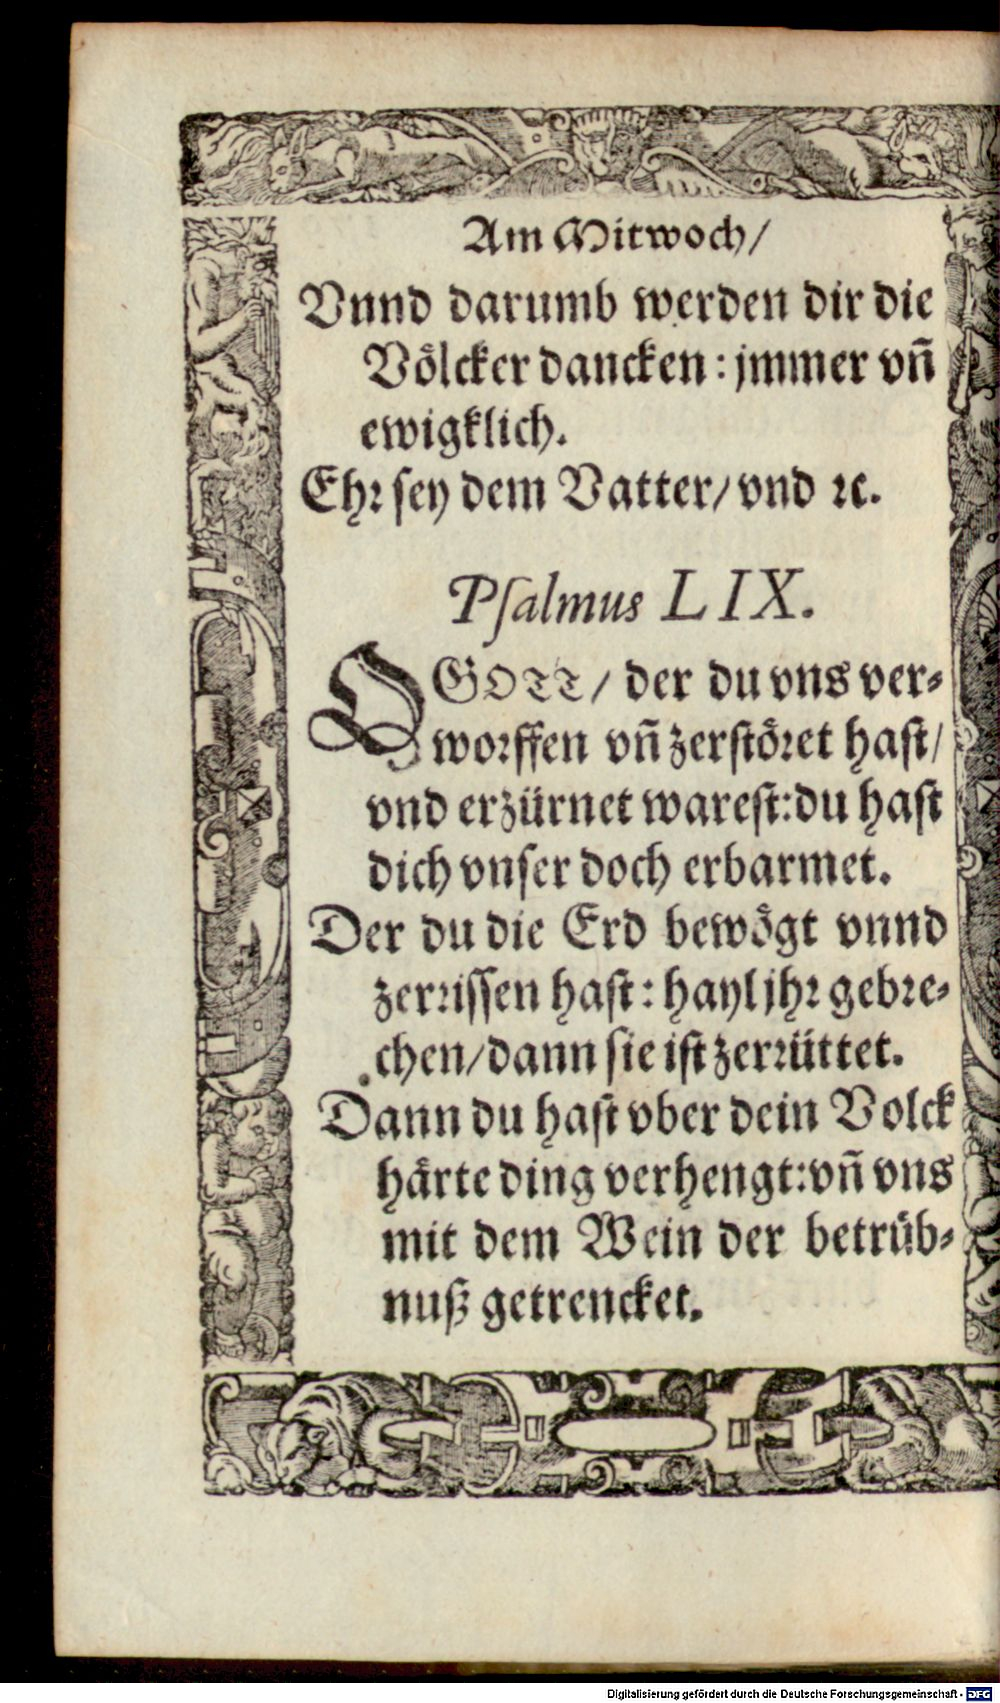 Am Mitwoch/
Vnnd darumb werden dir die
Völcker dancken: jmmer vñ
ewigklich.
Ehr sey dem Vatter/ vnd ꝛc.
Psalmus LIX.
O GOTT/ der du vns ver-
worffen vñ zerstöret hast/
vnd erzürnet warest: du hast
dich vnser doch erbarmet.
Der du die Erd bewögt vnnd
zerrissen hast: hayl jhr gebre-
chen/ dann sie ist zerrüttet.
Dann du hast vber dein Volck
härte ding verhengt: vñ vns
mit dem Wein der betrüb-
nuß getrencket.
Digitalisierung gefördert durch die Deutsche Forschungsgemeinschaft - DFG